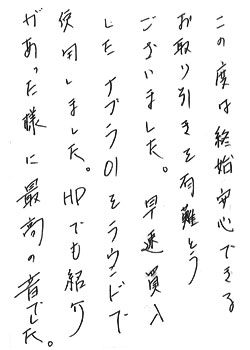 この度は終始安心できる
お取り引きを有難とう
ございました。早速買入
した ナブラ01をラウンドで
使用しました。HPでも紹介
があった様に最高の者でした。